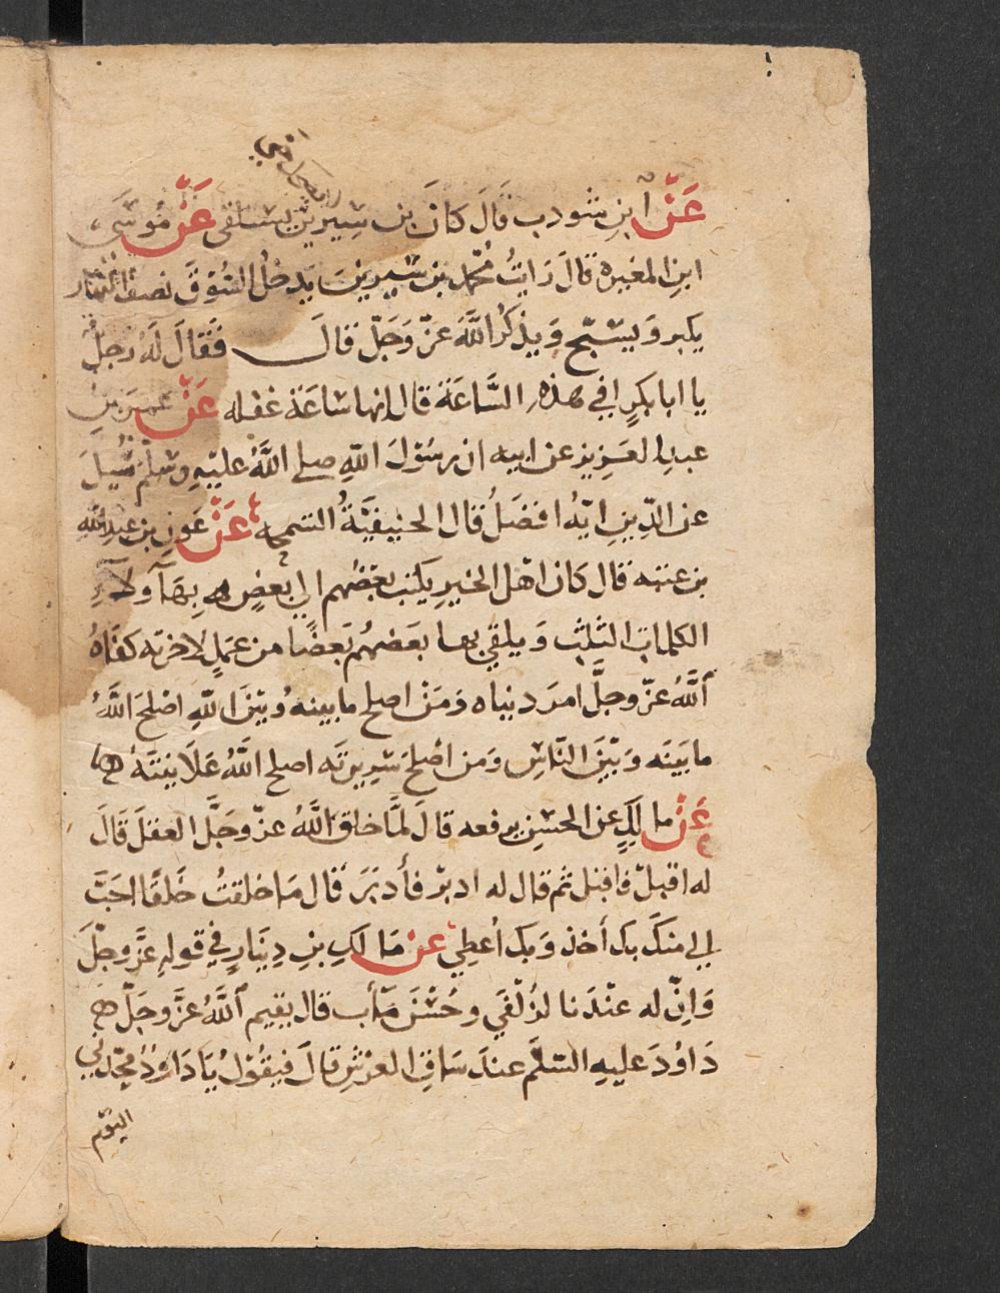 عَنْ ابنِ شودب قَالَ كانَ بن سِيرين يستلقى عَنْ مُوسَى
ابنِ المغيرة قالَ رَايتُ محمّد بن سيرينَ يَدخلُ السُوقَ نصفَ النّهار
يكبر وَيسَبّح وَيذكرُ اللّهَ عزّ وَجَلّ قالَ فَقالَ لَهُ رَجلٌ
يا ابا بكرٍ افي هذهِ السَّاعَة قال انها سَاعَة غفله عَنْ عمَر بنِ
عبدِ العَزيز عن ابيه ان رسُولَ اللّهِ صلى اللّهُ عليهِ وسَلمَ سُيلَ
عن الدّينِ ايّهُ افضَلُ قال الحنيفيّةُ السّمحه عَنْ عَونِ بن عبدِ اللّهِ
بن عتبه قال كان اهْل الخيرِ يكتب بعضهم الي بعضٍ بهَآولآءِ
الكلمات الثلث وَيلقي بها بعَضهُم بَعضًا من عمَلٍ لاخرته كفاهُ
اللّهُ عزّ وجلَّ امرَ دنياه وَمَن اصلح ما بينهُ وبَينَ اللّهِ اصْلحَ اللّهُ
ما بَينَه وَبَينَ النّاسِ وَمن اصْلحَ سَرِيرتَه اصلح اللّهُ عَلَانيتَهُ
عَنْ مالكٍ عن الحسَنِ يرفعه قالَ لمّا خلقَ اللّهُ عزّ وجَلَّ العقلَ قَالَ
له اقبلْ فاقبل ثم قال له ادبرْ فأدبَرَ قَال مَا خلقتُ خَلقًا احَبَّ
الي منكَ بك أخذ وَبك أعطِي عنْ مَالكِ بنِ دِينَارٍ في قولهِ عزّ وجَلَّ
وَانّ له عنْدَنا لزُلْفَي وحُسْنَ مَأب قال يقيم اللّهُ عزَّ وجَلّ
دَاوُدَ عليهِ السّلَم عندَ سَاقِ العَرْشِ قالَ فيقُوْلُ يَا دَاوُدُ مجّدني
اليَوْم